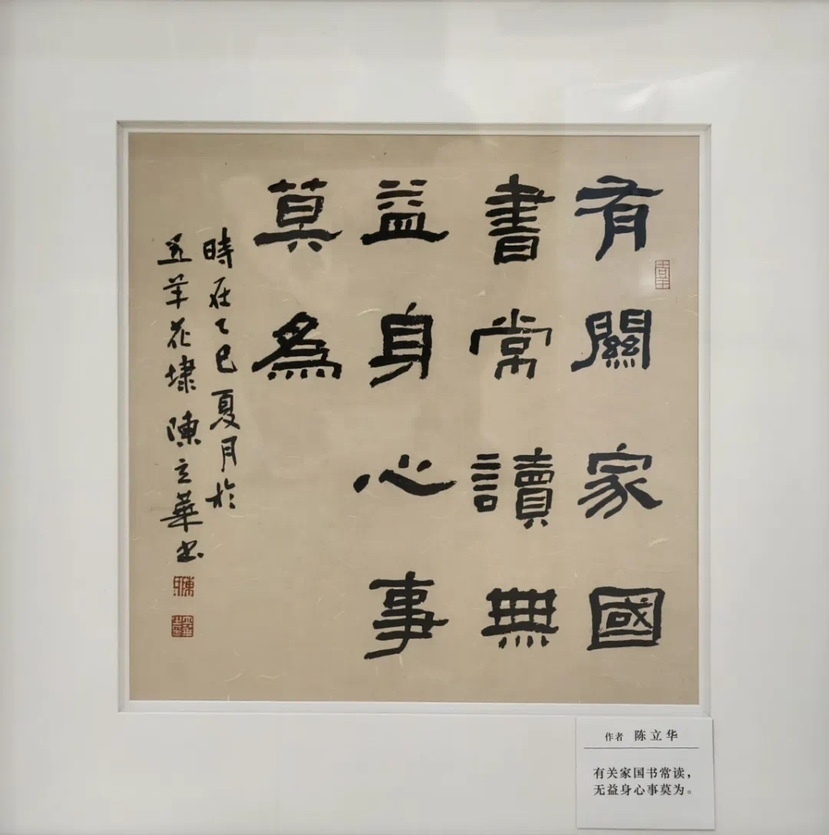 有關家國
書常讀無
益身心事
莫為
時在乙巳夏月於
五羊花埭陳立華書
作者 陈立华
有关家国书常读，
无益身心事莫为。